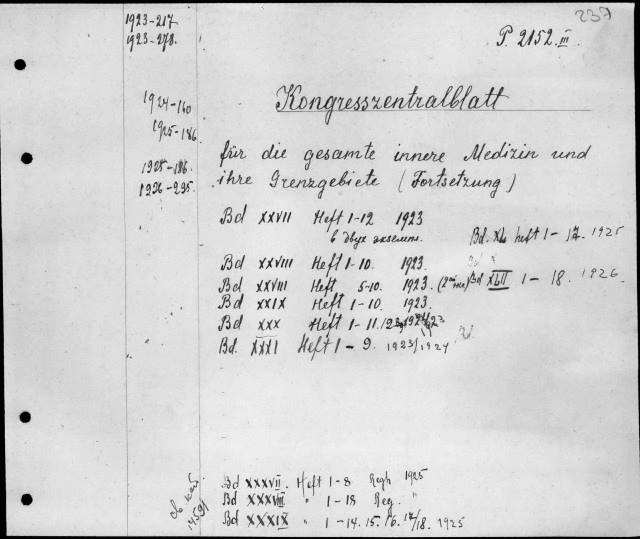 237
P. 2152.III.
1923-217
1923-278.
1924-160
1925-186
1925-186.
1926-295.
Kongresszentralblatt
für die gesamte innere Medizin und
ihre Grenzgebiete (Fortsetzung)
Bd XXVII Heft 1-12 1923
в двух экземп.
Bd. XL heft 1-17. 1925
Bd XXVIII Heft 1-10. 1923.
Bd XXVIII Heft 5-10. 1923.
Bd XLII 1-18. 1926
Bd XXIX Heft 1-10. 1923.
Bd XXX Heft 1-11.
Bd. XXXI Heft 1-9. 1923/1924
Bd XXXVII. Heft 1-8 Regh 1925
Bd XXXVIII " 1-18 Reg. "
Bd XXXIX " 1-14. 15. 16. 17/18. 1925